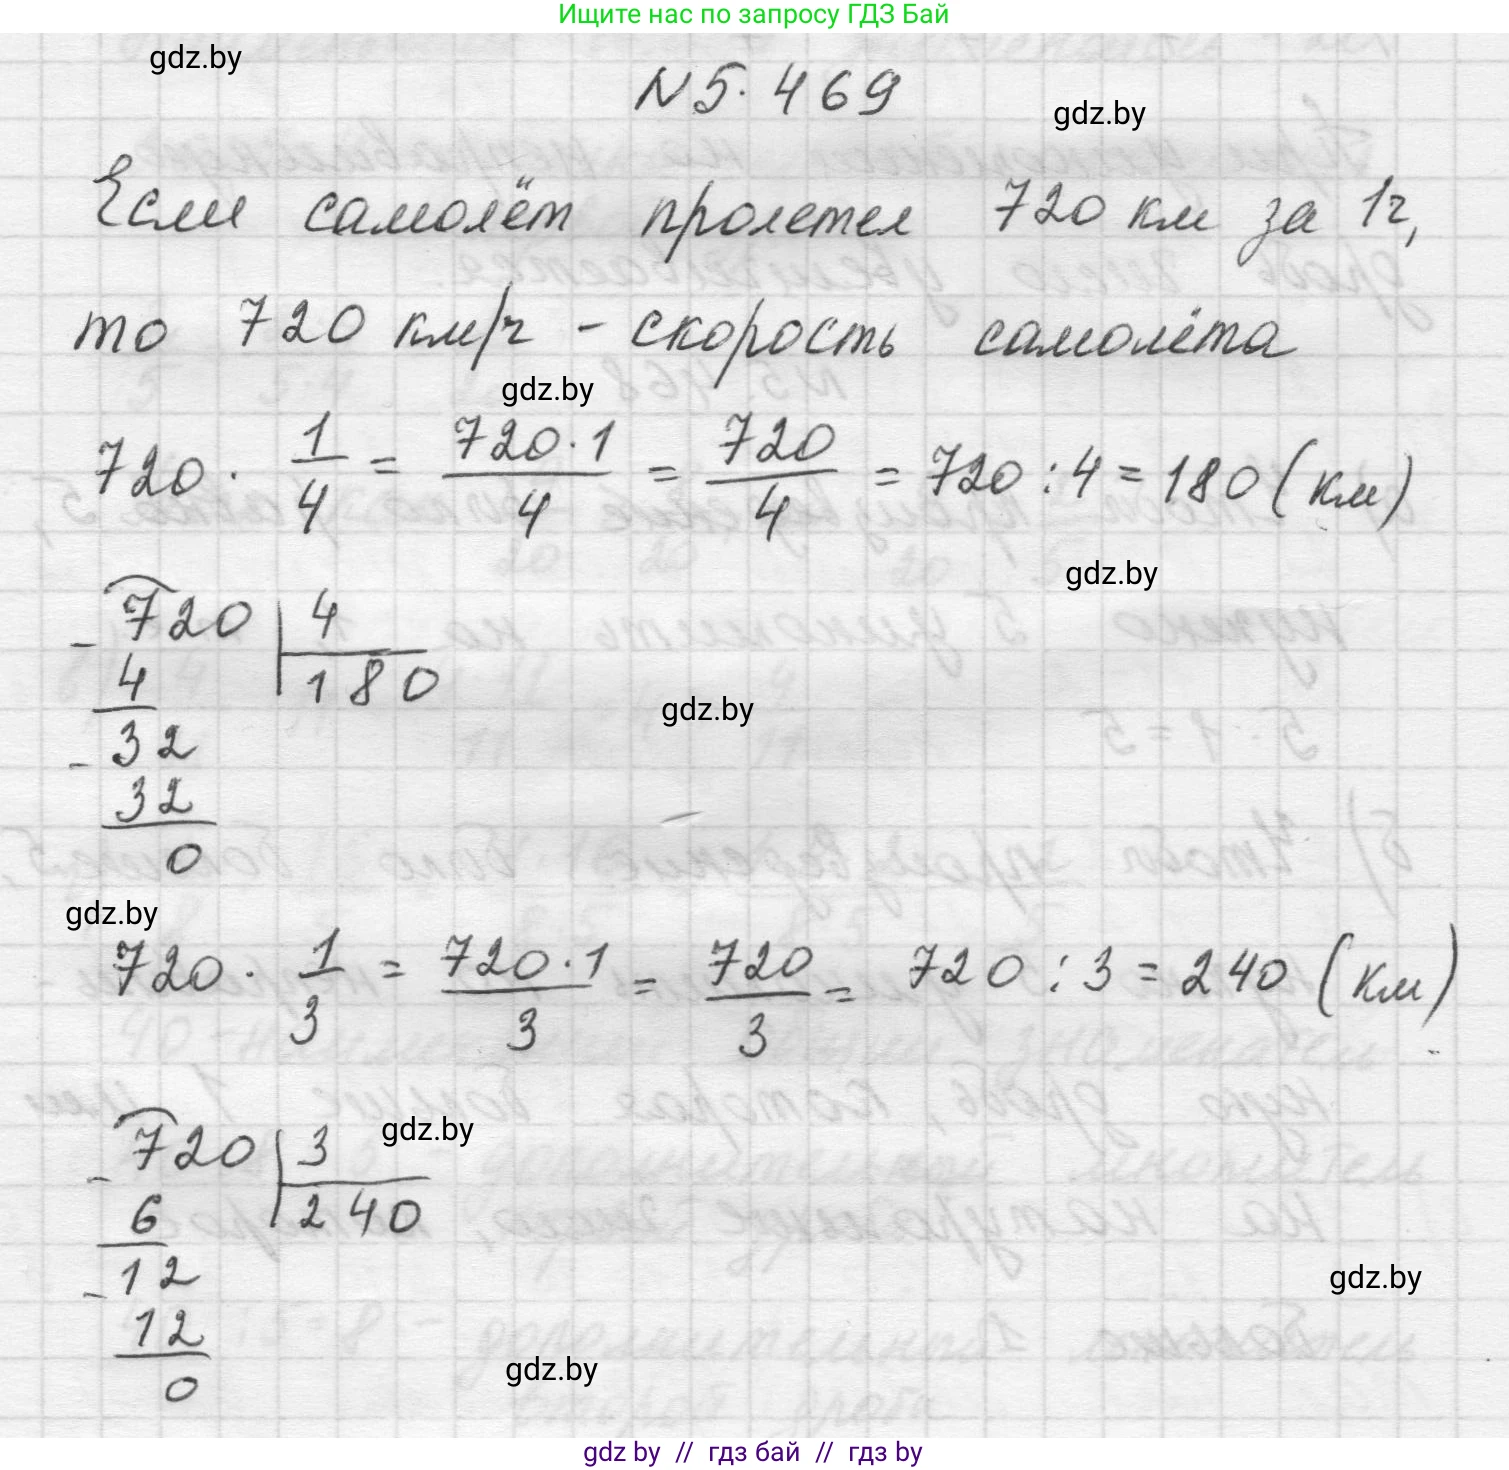 Ищите нас по запросу ГДЗ Бай
gdz.by
N 5. 469
gdz.by
Если самолёт пролетел 720 км за 1ч,
то 720 км/ч - скорость самолёта
gdz.by
720 · 1/4 = 720·1/4 = 720/4 = 720 : 4 = 180 (км)
gdz.by
- 720 | 4
4 | 180
gdz.by
- 32
32
0
gdz.by
720 · 1/3 = 720·1/3 = 720/3 = 720 : 3 = 240 (км)
gdz.by
- 720 | 3
6 | 240
- 12
gdz.by
12
0
gdz.by
gdz by // гдз бай // гдз by